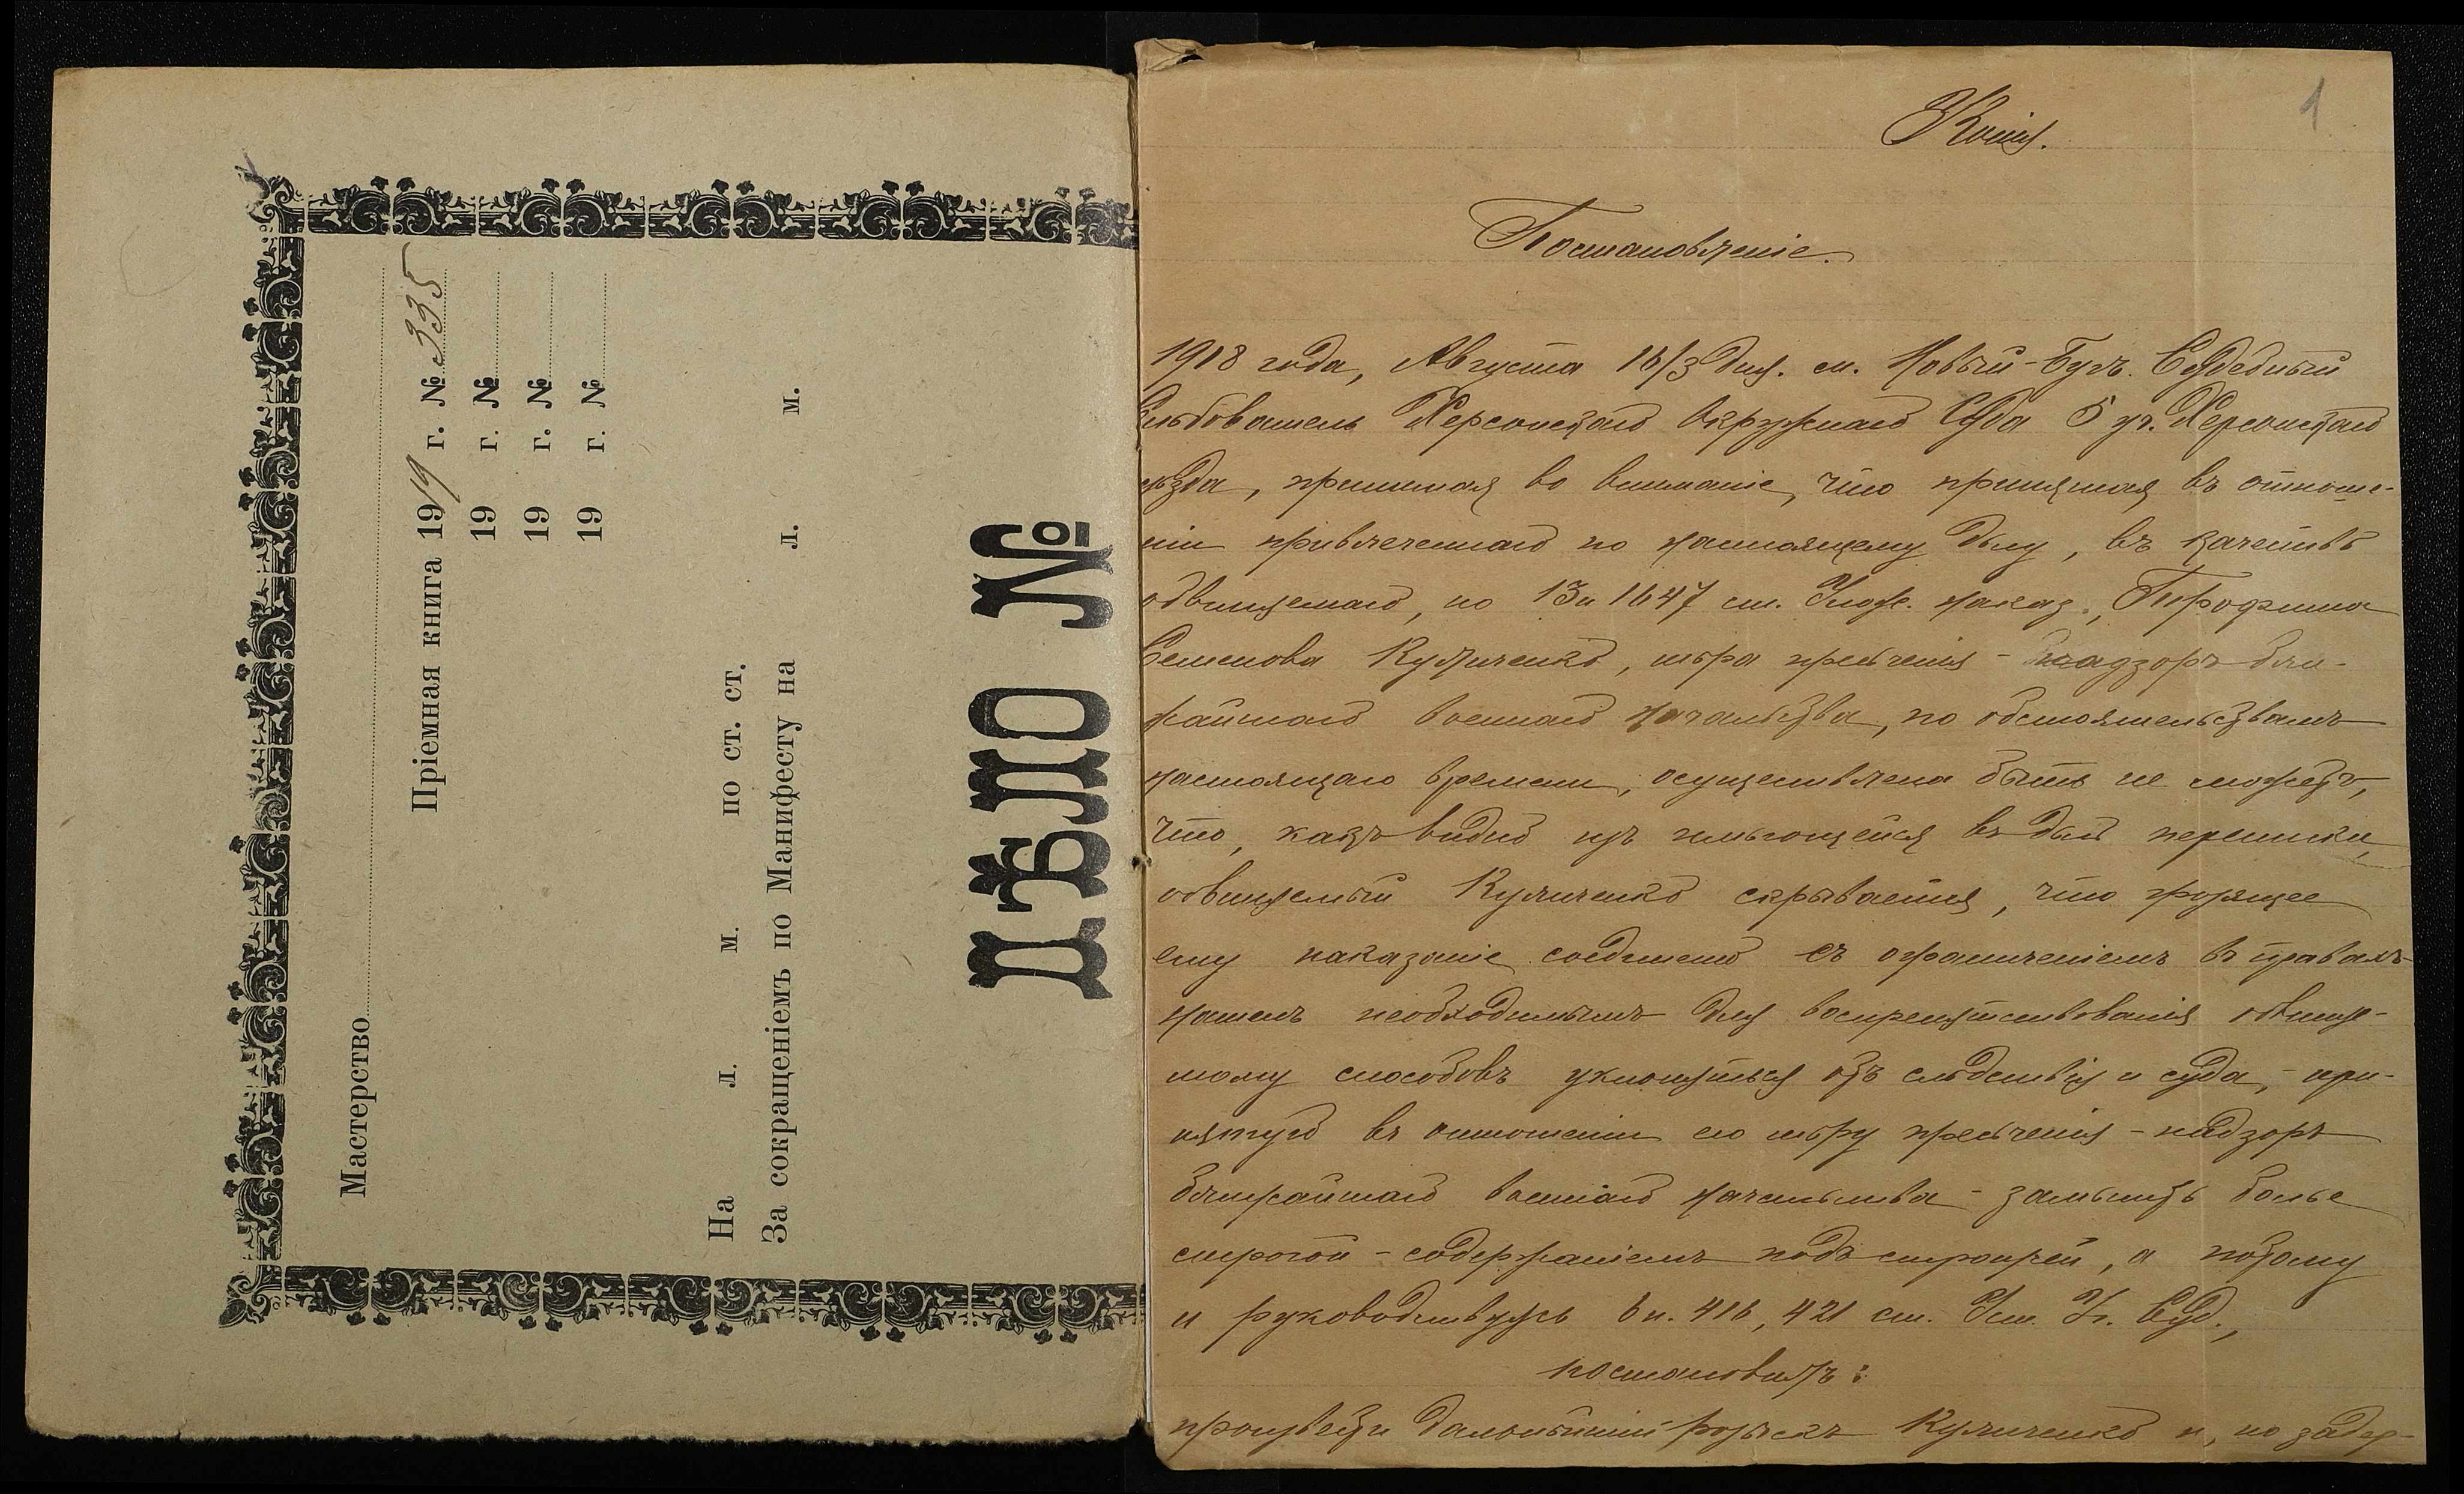 Мастерство
Пріемная книга 1919 г. № 335
19 г. №
19 г. №
19 г. №
На л. м. по ст. ст.
За сокращеніемъ по Манифесту на л. м.
ДѢЛО №
1
Копія.
Постановленіе.
1918 года, Августа 16/3 дня. м. Новый-Бугъ. Судебный
Слѣдователь Херсонскаго Окружнаго Суда 5 уч. Херсонскаго
уѣзда, принимая во вниманіе, что принятая въ отноше-
ніи привлеченнаго по настоящему дѣлу, въ качествѣ
обвиняемаго, по 13 и 1647 ст. Улож. наказ., Трофима
Семенова Куличенко, мѣра пресѣченія - надзоръ бли-
жайшаго военнаго начальства, по обстоятельствамъ
настоящаго времени, осуществлена быть не можетъ,
что, какъ видно изъ имѣющейся въ дѣлѣ переписки,
обвиняемый Куличенко скрывается, что грозящее
ему наказаніе соединено съ ограниченіемъ въ правахъ
нашелъ необходимымъ для воспрепятствованія обвиняе-
мому способовъ уклоняться отъ слѣдствія и суда, - при-
нятую въ отношеніи его мѣру пресѣченія - надзоръ
ближайшаго военнаго начальства - замѣнить болѣе
строгой - содержаніемъ подъ стражей, а потому
и руководствуясь 6 п. 416, 421 ст. Уст. Уг. Суд.,
постановилъ:
произвести дальнѣйшій розыскъ Куличенко и, по задер-